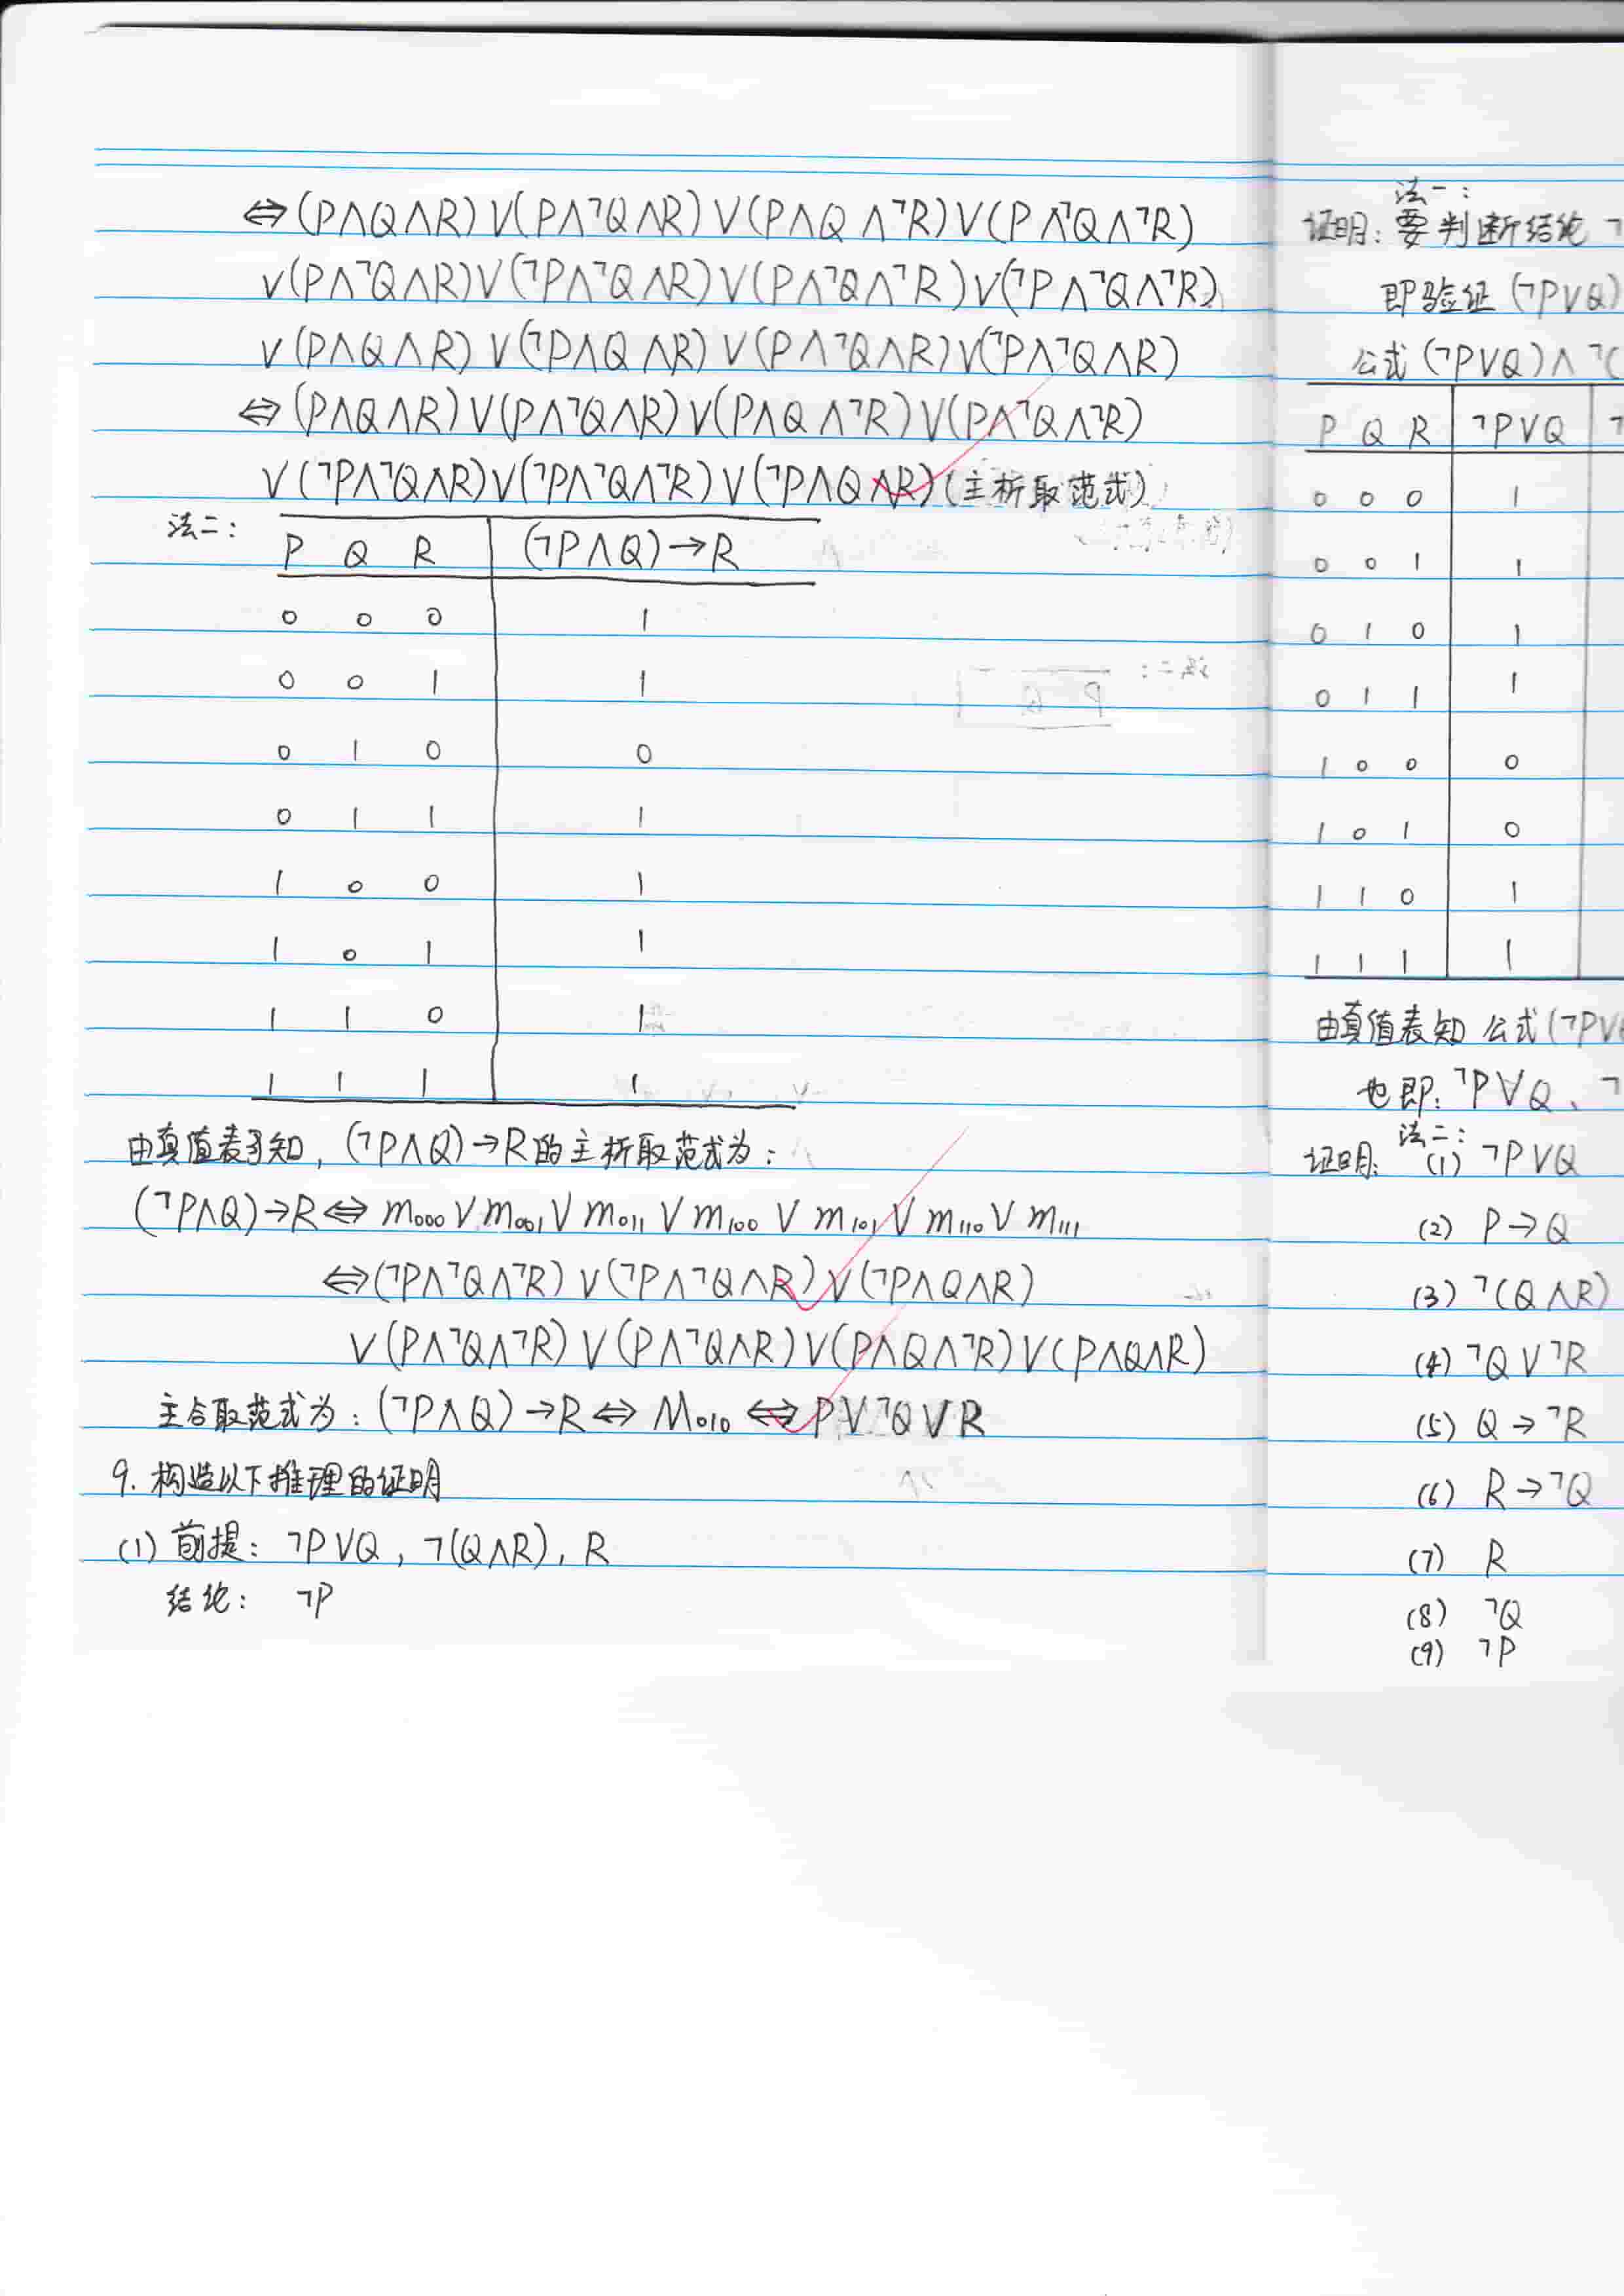 ⇔(P∧Q∧R)∨(P∧¬Q∧R)∨(P∧Q∧¬R)∨(P∧¬Q∧¬R)
∨(P∧¬Q∧R)∨(¬P∧¬Q∧R)∨(P∧¬Q∧¬R)∨(¬P∧¬Q∧¬R)
∨(P∧Q∧R)∨(¬P∧Q∧R)∨(P∧¬Q∧R)∨(¬P∧¬Q∧R)
⇔(P∧Q∧R)∨(P∧¬Q∧R)∨(P∧Q∧¬R)∨(P∧¬Q∧¬R)
∨(¬P∧¬Q∧R)∨(¬P∧¬Q∧¬R)∨(¬P∧Q∧R)(主析取范式)
法二:
P Q R (¬P∧Q)→R
0 0 0 1
0 0 1 1
0 1 0 0
0 1 1 1
1 0 0 1
1 0 1 1
1 1 0 1
1 1 1 1
由真值表可知, (¬P∧Q)→R的主析取范式为:
(¬P∧Q)→R⇔m₀₀₀∨m₀₀₁∨m₀₁₁∨m₁₀₀∨m₁₀₁∨m₁₁₀∨m₁₁₁
⇔(¬P∧¬Q∧¬R)∨(¬P∧¬Q∧R)∨(¬P∧Q∧R)
∨(P∧¬Q∧¬R)∨(P∧¬Q∧R)∨(P∧Q∧¬R)∨(P∧Q∧R)
主合取范式为:(¬P∧Q)→R⇔M₀₁₀⇔P∨¬Q∨R
9. 构造以下推理的证明
(1) 前提: ¬P∨Q, ¬(Q∧R), R
结论: ¬P
法一:
证明: 要判断结论 ¬
即验证(¬P∨Q)
公式(¬P∨Q)∧¬(
P Q R ¬P∨Q ¬
0 0 0 1
0 0 1 1
0 1 0 1
0 1 1 1
1 0 0 0
1 0 1 0
1 1 0 1
1 1 1 1
由真值表知 公式(¬P∨
也即: ¬P∨Q、¬
法二:
证明: (1) ¬P∨Q
(2) P→Q
(3) ¬(Q∧R)
(4) ¬Q∨¬R
(5) Q→¬R
(6) R→¬Q
(7) R
(8) ¬Q
(9) ¬P